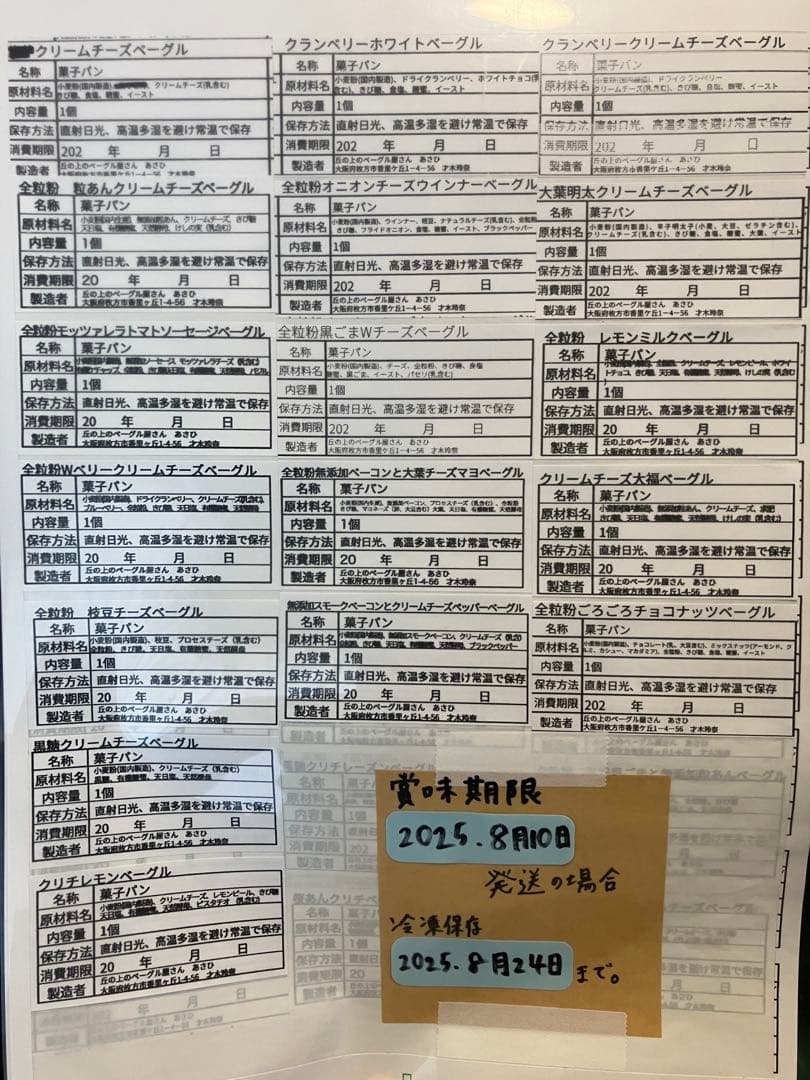 クリームチーズベーグル
名称 菓子パン
原材料名 小麦粉(国内製造)、クリームチーズ(乳含む)
きび糖、食塩、糖蜜、イースト
内容量 1個
保存方法 直射日光、高温多湿を避け常温で保存
消費期限 202 年 月 日
製造者 丘の上のベーグル屋さん あさひ
大阪府枚方市香里ケ丘1-4-56 才木玲奈
クランベリーホワイトベーグル
名称 菓子パン
原材料名 小麦粉(国内製造)、ドライクランベリー、ホワイトチョコ(乳
含む)、きび糖、食塩、糖蜜、イースト
内容量 1個
保存方法 直射日光、高温多湿を避け常温で保存
消費期限 202 年 月 日
製造者 丘の上のベーグル屋さん あさひ
大阪府枚方市香里ケ丘1-4-56 才木玲奈
クランベリークリームチーズベーグル
名称 菓子パン
原材料名 小麦粉(国内製造)、ドライクランベリー
クリームチーズ(乳含む)、きび糖、食塩、糖蜜、イースト
内容量 1個
保存方法 直射日光、高温多湿を避け常温で保存
消費期限 202 年 月 日
製造者 丘の上のベーグル屋さん あさひ
大阪府枚方市香里ケ丘1-4-56 才木玲奈
全粒粉 粒あんクリームチーズベーグル
名称 菓子パン
原材料名
内容量 1個
保存方法 直射日光、高温多湿を避け常温で保存
消費期限 20 年 月 日
製造者 丘の上のベーグル屋さん あさひ
大阪府枚方市香里ケ丘1-4-56 才木玲奈
全粒粉オニオンチーズウインナーベーグル
名称 菓子パン
原材料名 小麦粉(国内製造)、ウインナー、枝豆、ナチュラルチーズ(乳含む)、全粒粉
きび糖、フライドオニオン、食塩、糖蜜、イースト、ブラックペッパー
内容量 1個
保存方法 直射日光、高温多湿を避け常温で保存
消費期限 202 年 月 日
製造者 丘の上のベーグル屋さん あさひ
大阪府枚方市香里ケ丘1-4-56 才木玲奈
大葉明太クリームチーズベーグル
名称 菓子パン
原材料名 小麦粉(国内製造)、辛子明太子(小麦、大豆、ゼラチン含む)、
クリームチーズ(乳含む)、きび糖、食塩、糖蜜、大葉、イースト
内容量 1個
保存方法 直射日光、高温多湿を避け常温で保存
消費期限 202 年 月 日
製造者 丘の上のベーグル屋さん あさひ
大阪府枚方市香里ケ丘1-4-56 才木玲奈
全粒粉モッツァレラトマトソーセージベーグル
名称 菓子パン
原材料名
内容量 1個
保存方法 直射日光、高温多湿を避け常温で保存
消費期限 20 年 月 日
製造者 丘の上のベーグル屋さん あさひ
大阪府枚方市香里ケ丘1-4-56 才木玲奈
全粒粉黒ごまWチーズベーグル
名称 菓子パン
原材料名 小麦粉(国内製造)、チーズ、全粒粉、きび糖、食塩
糖蜜、黒ごま、イースト、パセリ(乳含む)
内容量 1個
保存方法 直射日光、高温多湿を避け常温で保存
消費期限 202 年 月 日
製造者 丘の上のベーグル屋さん あさひ
大阪府枚方市香里ケ丘1-4-56 才木玲奈
全粒粉 レモンミルクベーグル
名称 菓子パン
原材料名
内容量 1個
保存方法 直射日光、高温多湿を避け常温で保存
消費期限 20 年 月 日
製造者 丘の上のベーグル屋さん あさひ
大阪府枚方市香里ケ丘1-4-56 才木玲奈
全粒粉Wベリークリームチーズベーグル
名称 菓子パン
原材料名
内容量 1個
保存方法 直射日光、高温多湿を避け常温で保存
消費期限 20 年 月 日
製造者 丘の上のベーグル屋さん あさひ
大阪府枚方市香里ケ丘1-4-56 才木玲奈
全粒粉無添加ベーコンと大葉チーズマヨベーグル
名称 菓子パン
原材料名
内容量 1個
保存方法 直射日光、高温多湿を避け常温で保存
消費期限 20 年 月 日
製造者 丘の上のベーグル屋さん あさひ
大阪府枚方市香里ケ丘1-4-56 才木玲奈
クリームチーズ大福ベーグル
名称 菓子パン
原材料名
内容量 1個
保存方法 直射日光、高温多湿を避け常温で保存
消費期限 20 年 月 日
製造者 丘の上のベーグル屋さん あさひ
大阪府枚方市香里ケ丘1-4-56 才木玲奈
全粒粉 枝豆チーズベーグル
名称 菓子パン
原材料名 小麦粉(国内製造)、枝豆、プロセスチーズ(乳含む)
全粒粉、きび糖、天日塩、有機糖蜜、天然酵母
内容量 1個
保存方法 直射日光、高温多湿を避け常温で保存
消費期限 20 年 月 日
製造者 丘の上のベーグル屋さん あさひ
大阪府枚方市香里ケ丘1-4-56 才木玲奈
無添加スモークベーコンとクリームチーズペッパーベーグル
名称 菓子パン
原材料名
内容量 1個
保存方法 直射日光、高温多湿を避け常温で保存
消費期限 20 年 月 日
製造者 丘の上のベーグル屋さん あさひ
大阪府枚方市香里ケ丘1-4-56 才木玲奈
全粒粉ごろごろチョコナッツベーグル
名称 菓子パン
原材料名 小麦粉(国内製造)、チョコレート(乳、大豆含む)、ミックスナッツ(アーモンド、ク
ルミ、カシュー、マカダミア)、全粒粉、きび糖、食塩、糖蜜、イースト
内容量 1個
保存方法 直射日光、高温多湿を避け常温で保存
消費期限 202 年 月 日
製造者 丘の上のベーグル屋さん あさひ
大阪府枚方市香里ケ丘1-4-56 才木玲奈
黒糖クリームチーズベーグル
名称 菓子パン
原材料名 小麦粉(国内製造)、クリームチーズ、(乳含む)
黒糖、有機糖蜜、天日塩、天然酵母
内容量 1個
保存方法 直射日光、高温多湿を避け常温で保存
消費期限 20 年 月 日
製造者 丘の上のベーグル屋さん あさひ
大阪府枚方市香里ケ丘1-4-56 才木玲奈
クリチレモンベーグル
名称 菓子パン
原材料名 小麦粉(国内製造)、クリームチーズ、レモンピール、きび糖
天日塩、有機糖蜜、天然酵母、ピスタチオ (乳含む)
内容量 1個
保存方法 直射日光、高温多湿を避け常温で保存
消費期限 20 年 月 日
製造者 丘の上のベーグル屋さん あさひ
大阪府枚方市香里ケ丘1-4-56 才木玲奈
賞味期限
2025.8月10日
発送の場合
冷凍保存
2025.8月24日まで。